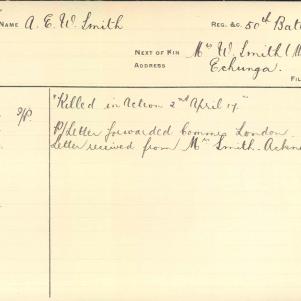 NAME A. E. W. Smith REG. &C. 50th Batt
NEXT OF KIN Mrs W. Smith (M
ADDRESS Echunga.
FIL
"Killed in Action 2nd April 17."
P/Letter forwarded Comms London
Letter received from Mrs Smith - Ackn